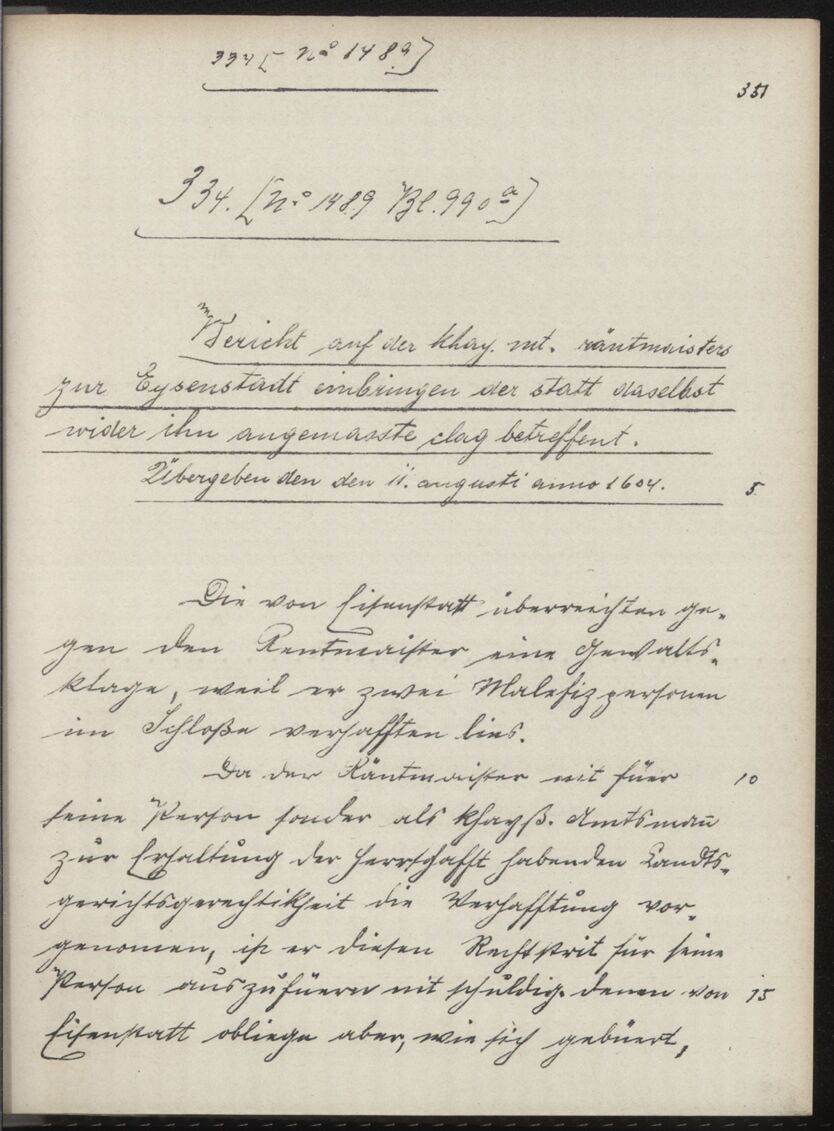 334 [ No 1489 ]
351
334. [No 1489 Bl. 990 a]
Bericht auf der khay. mt. räntmaisters
zur Eysenstadt einbringen der statt daselbst
wider ihn angemasste clag betreffent.
Übergeben den den 11. augusti anno 1604.
5
Die von Eisenstatt überreichten ge-
gen den Rentmaister eine Gewalts-
klage, weil er zwei Malefizpersonen
im Schloße verhafften lies.
Da der Räntmaister nit füer
10
seine Person sonder als khayß. Amtsman̄
zur Erhaltung der Herrschafft habenden Landts-
gerichtsgerechtikheit die Verhafftung vor-
genomen, ist er diesen Rechtstrit für seine
Person auszufüern nit schuldig. denen von
15
Eisenstatt obliege aber, wie sich gebüert,